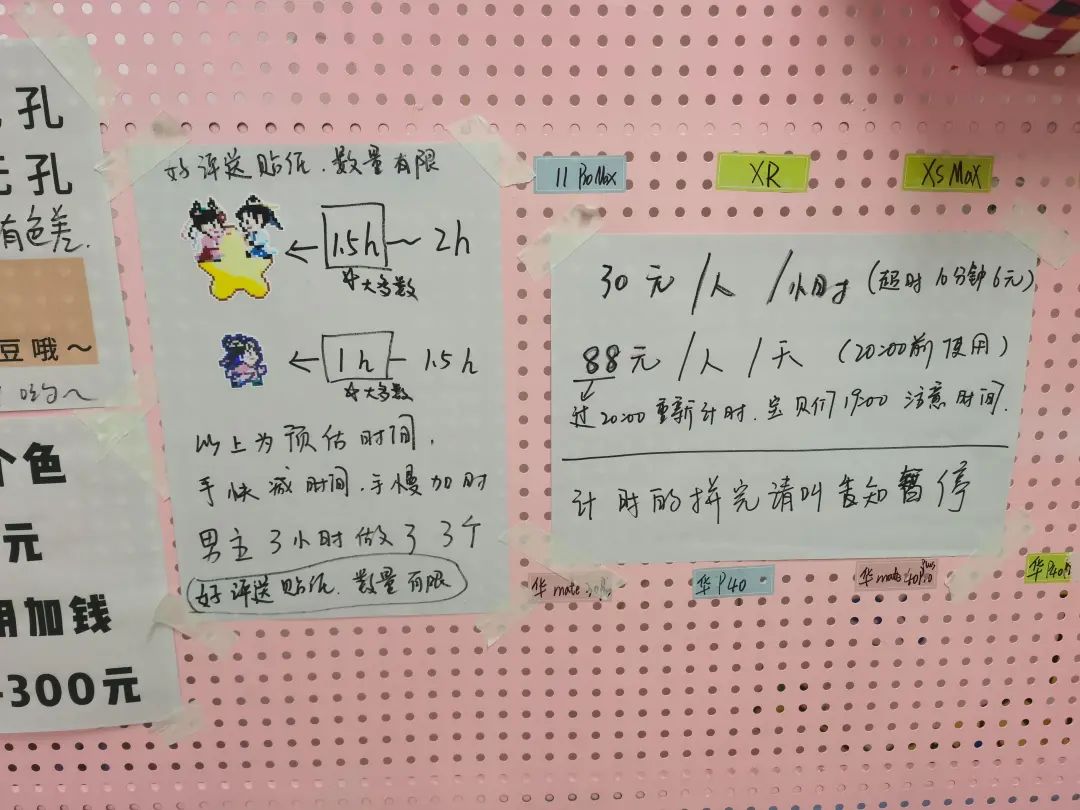 孔
元孔
有色差.
豆哦～
个色
元
加钱
-300元
好评送贴纸.数量有限
1.5h～2h
☆大多数
1h-1.5h
☆大多数
以上为预估时间,
手快减时间.手慢加时
男生3小时做了3个
好评送贴纸.数量有限
11 Pro Max
XR
XS Max
30元/人/小时(超时10分钟6元)
88元/人/天(20:00前使用)
过20:00重新计时.宝贝们19:00注意时间.
计时的拼完请叫告知暂停
华 mate 30 Pro
华 P40
华 mate 40 Pro Plus
华 P40